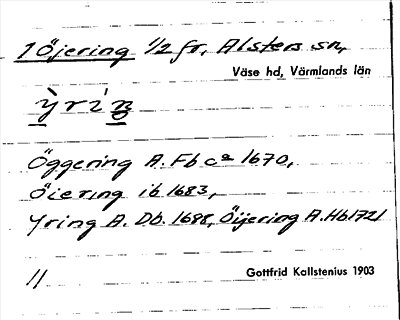 1 Öjering 1/2 fr, Alsters sn,
Väse hd, Värmlands län
ỳriŋ
Öggering A. Fb ca 1670,
Öiering ib 1683,
Yring A. Db. 1698, Öijering A. Hb 1721
11
Gottfrid Kallstenius 1903